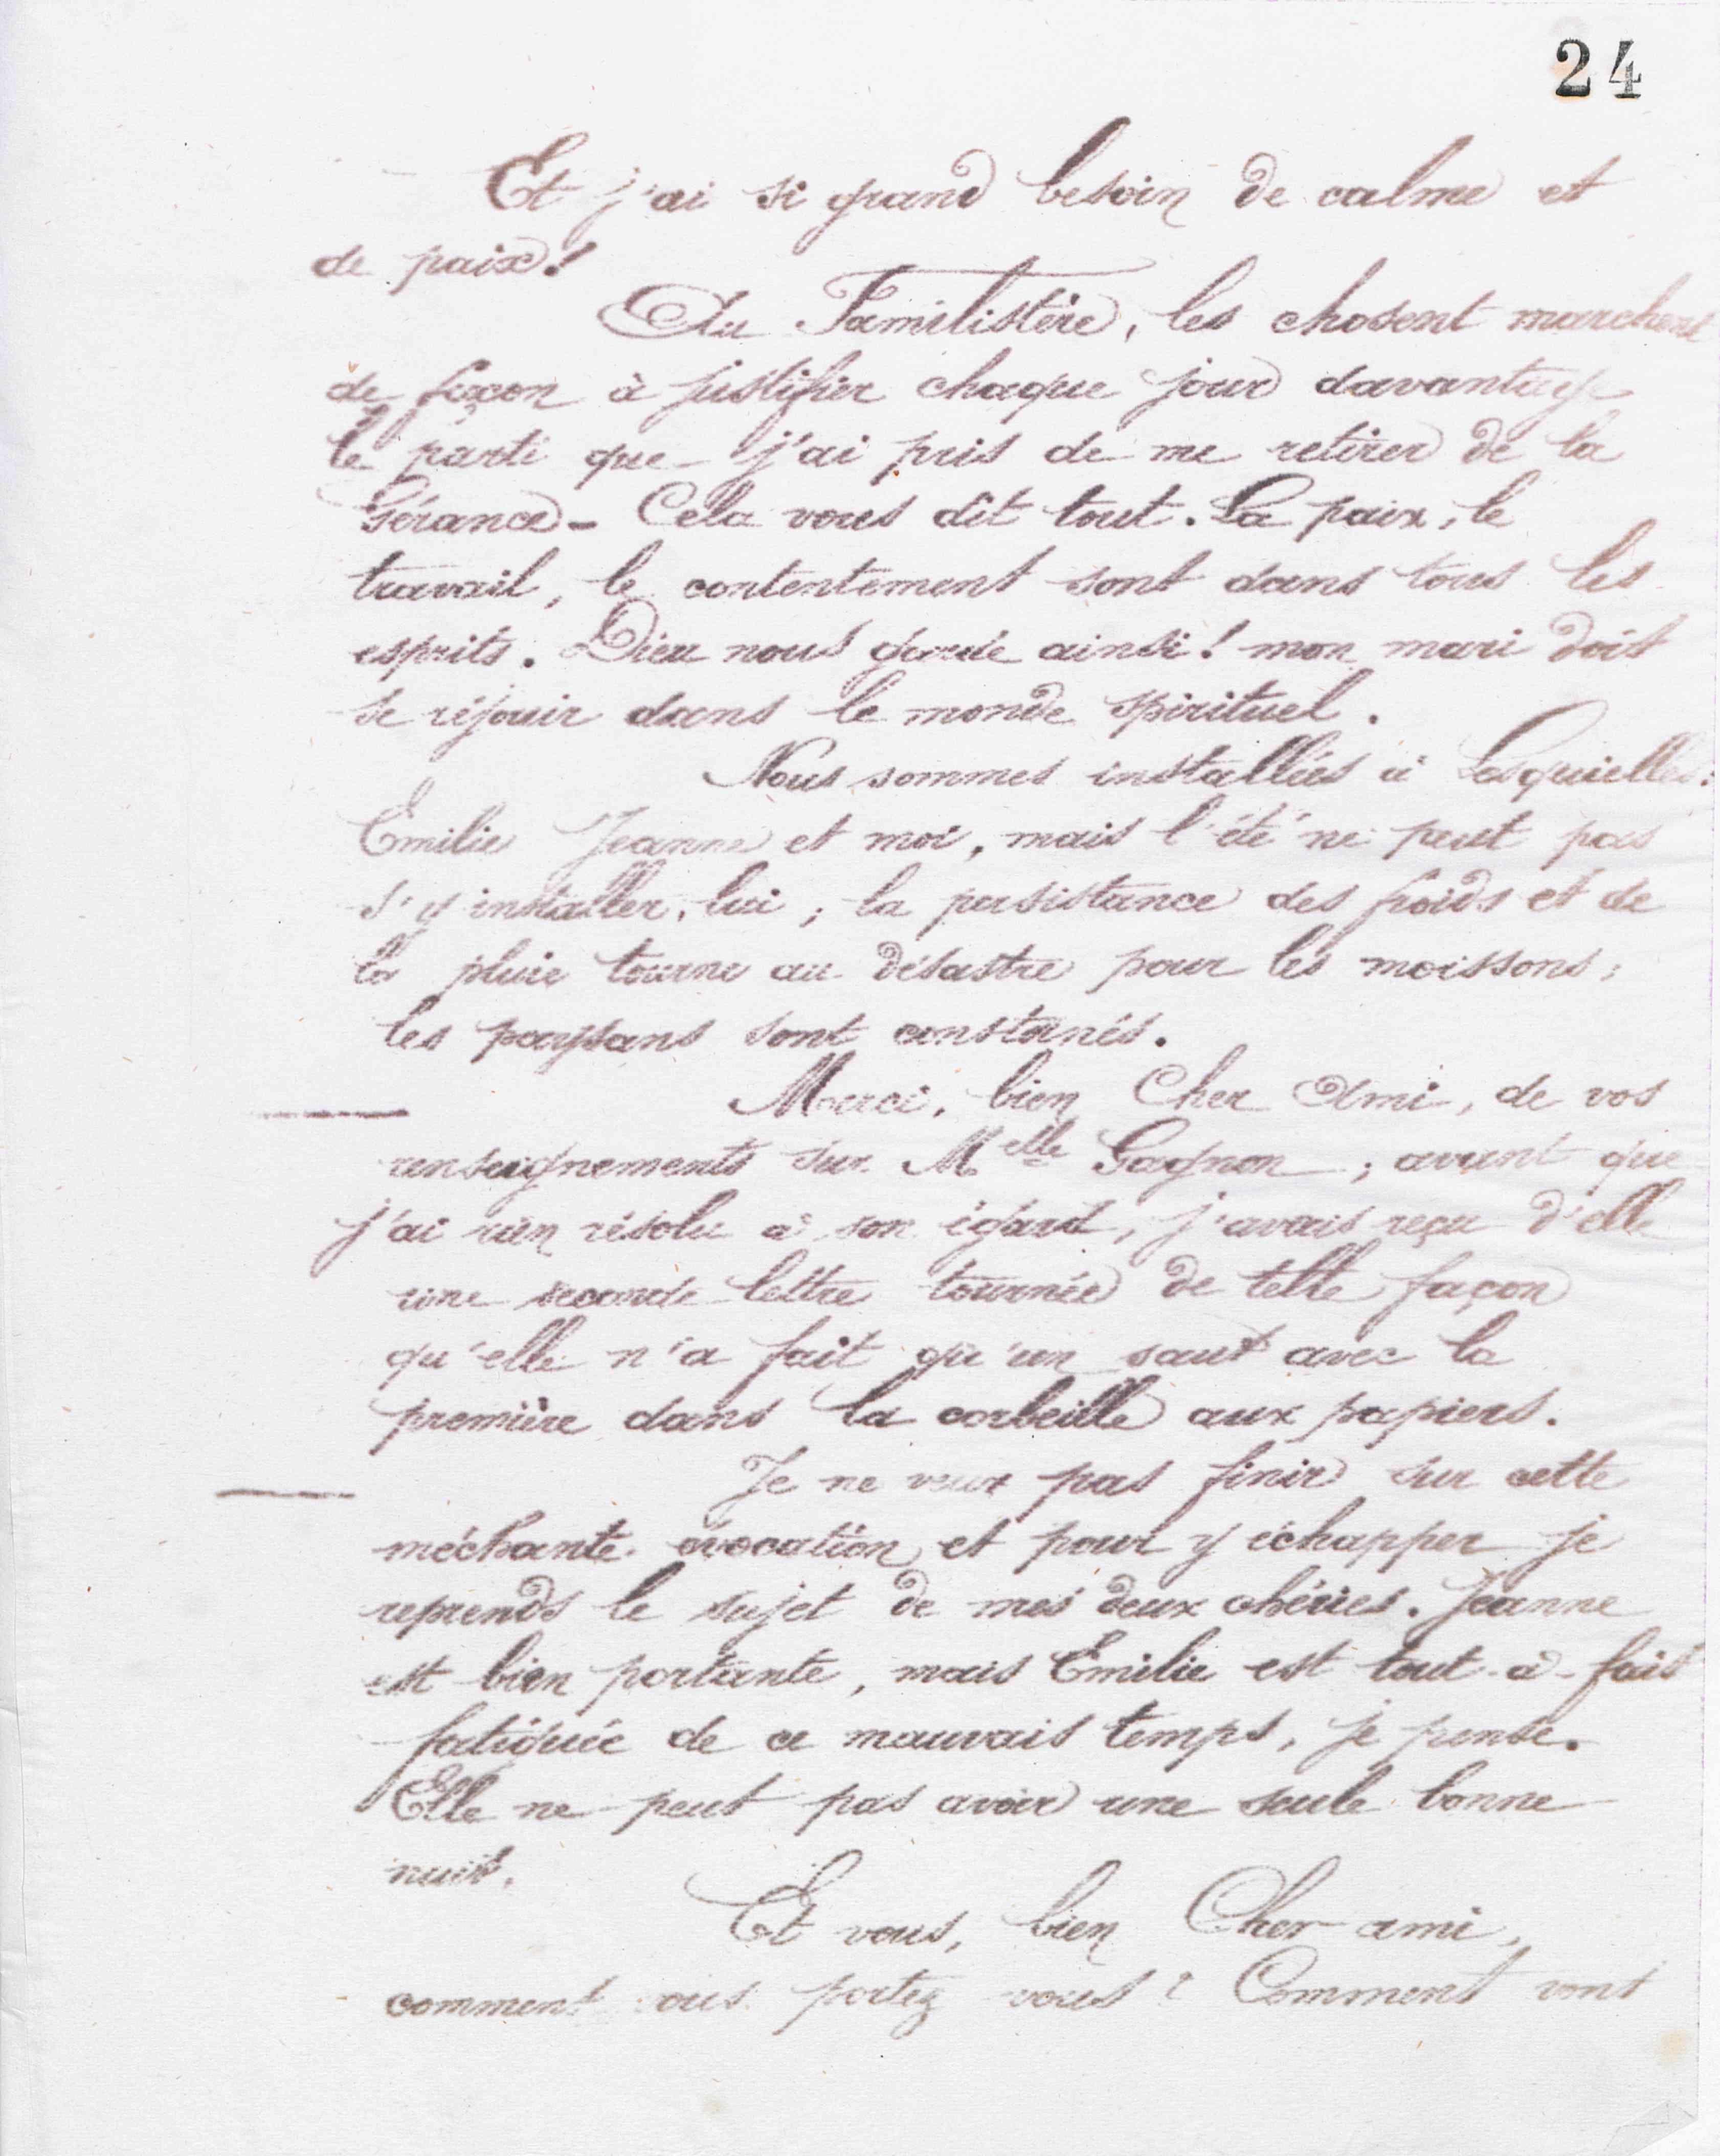 24
Et j'ai si grand besoin de calme et
de paix !
Au Familistère, les chosent marchent
de façon à justifier chaque jour davantage
le parti que j'ai pris de me retirer de la
Gérance - Cela vous dit tout. La paix, le
travail, le contentement sont dans tous les
esprits. Dieu nous garde ainsi ! mon mari doit
se réjouir dans le monde spirituel.
Nous sommes installées à Lesquielles :
Emilie Jeanne et moi, mais l'été ne peut pas
s'y installer, lui ; la persistance des froids et de
la pluie tourne au désastre pour les moissons ;
les paysans sont consternés.
Merci, bien Cher Ami, de vos
renseignements sur Melle Gagnon ; avant que
j'ai rien résolu à son égard, j'avais reçu d'elle
une seconde lettre tournée de telle façon
qu'elle n'a fait qu'un saut avec la
première dans la corbeille aux papiers.
Je ne veux pas finir sur cette
méchante évocation et pour y échapper je
reprends le sujet de mes deux chéries. Jeanne
est bien portante, mais Emilie est tout-à-fait
fatiguée de ce mauvais temps, je pense.
Elle ne peut pas avoir une seule bonne
nuit.
Et vous, bien Cher ami,
comment vous portez vous ? Comment vont